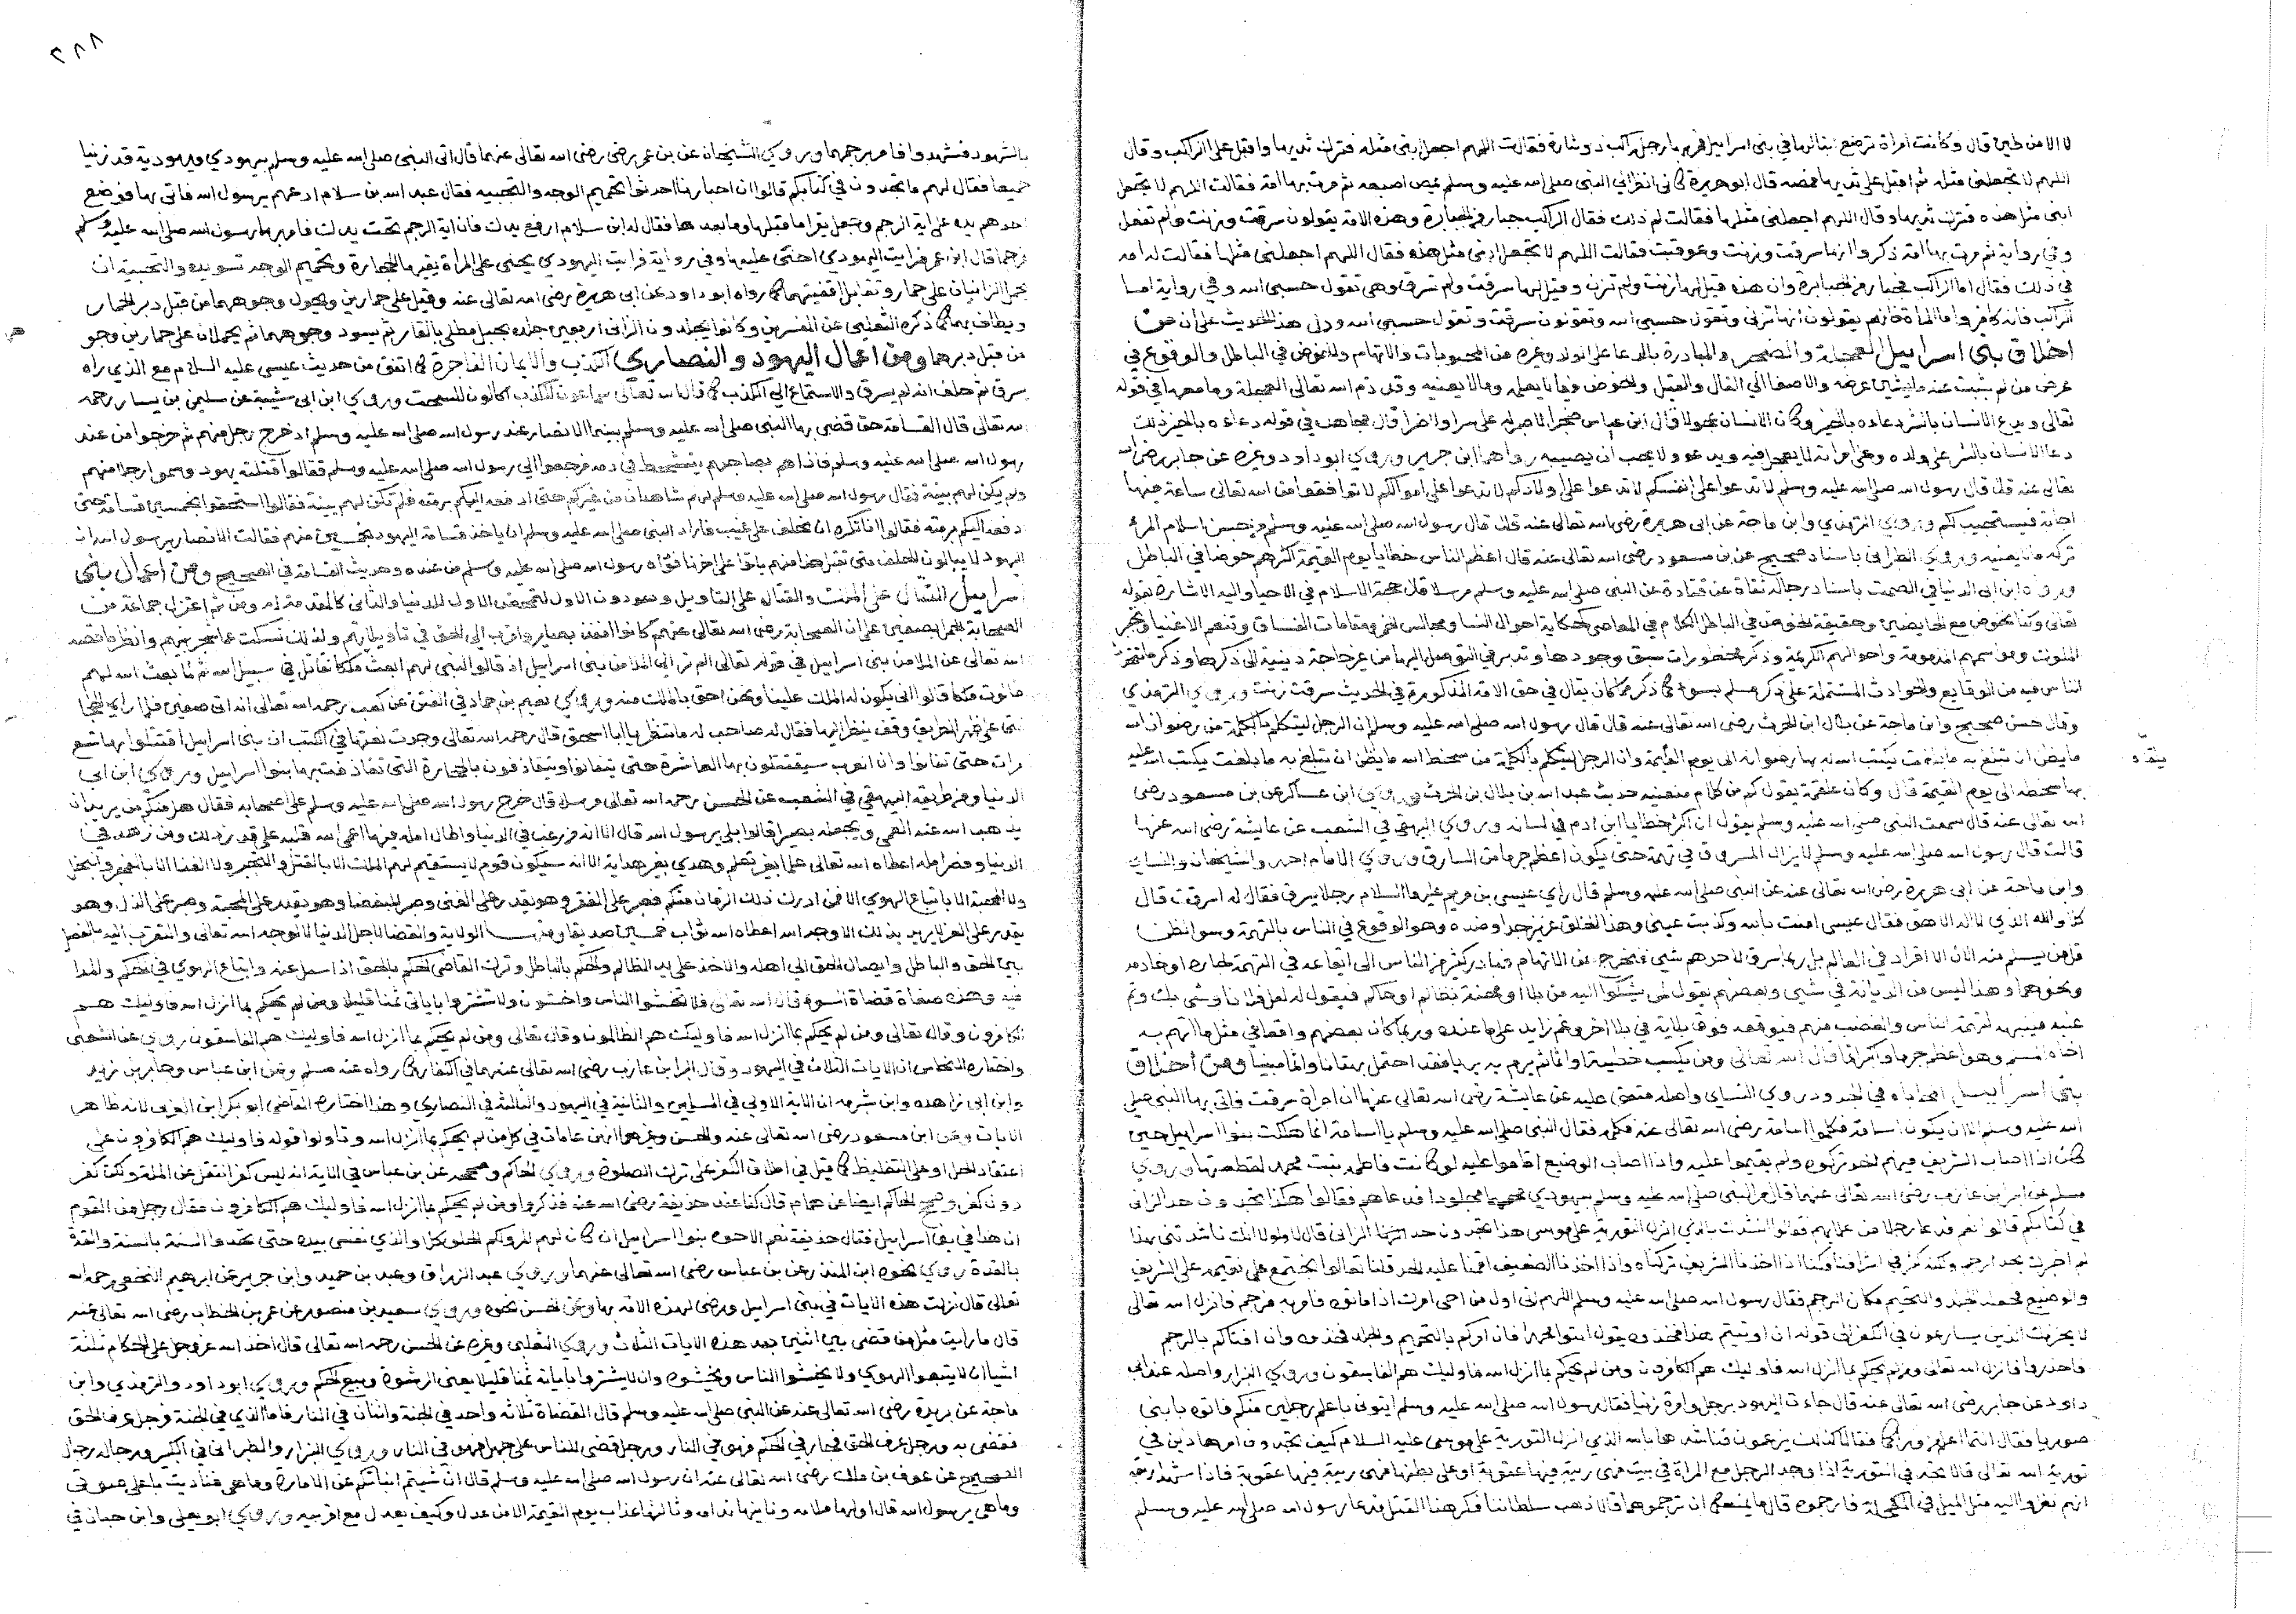 لا الا من طين قال وكانت امراة ترضع ابنا لها في بني اسرايل فمر بها رجل راكب ذو شارة فقالت اللهم اجعل ابني مثله فترك ثديها واقبل على الراكب وقال
اللهم لا تجعلني مثله ثم اقبل على ثديها يمصه قال ابو هريرة كاني انظر الي النبي صلى الله عليه وسلم يمص اصبعه ثم مرت بها امة فقالت اللهم لا تجعل
ابني مثل هذه فترك ثديها وقال اللهم اجعلني مثلها فقالت لم ذلك فقال الراكب جبار من الجبابرة وهذه الامة يقولون سرقت وزنت ولم تفعل
وفي رواية ثم مرت بها امة ذكروا انها سرقت وزنت وعوقبت فقالت اللهم لا تجعل ابني مثل هذه فقال اللهم اجعلني مثلها فقالت له امه
في ذلك فقال اما الراكب فجبار من الجبابرة وان هذه قيل لها زنت ولم تزن وقيل لها سرقت ولم تسرق وهي تقول حسبي الله وفي رواية اما
الراكب فانه كافر واما المراة فانهم يقولون انها تزني وتقول حسبي الله ويقولون سرقت وتقول حسبي الله ودل هذا الحديث على ان من
اخلاق بني اسرايل العجلة والضجر والمبادرة بالدعا على الولد وغيره من المحبوبات والاتهام والخوض في الباطل والوقوع في
عرض من لم يثبت عنه ما يشين عرضه والاصغا الي القال والقيل والخوض فيما لا يعلم وما لا يعنيه وقد ذم الله تعالى العجلة وما معها في قوله
تعالى ويدع الانسان بالشر دعاءه بالخير وكان الانسان عجولا قال ابن عباس ضجرا لا صبر له على سرا ولا ضرا وقال مجاهد في قوله دعاءه بالخير ذلك
دعا الانسان بالشر على ولده وعلى امراته لا يعجل فيه ويدعو ولا يحب ان يصيبه رواهما ابن جرير وروي ابو داود وغيره عن جابر رضي الله
تعالى عنه قال قال رسول الله صلى الله عليه وسلم لا تدعوا على انفسكم لا تدعوا على اولادكم لا تدعوا على اموالكم لا توافقوا من الله تعالى ساعة فيها
اجابة فيستجيب لكم وروي الترمذي وابن ماجة عن ابي هريرة رضي الله تعالى عنه قال قال رسول الله صلى الله عليه وسلم من حسن اسلام المرء
تركه ما لا يعنيه وروي الطبراني باسناد صحيح عن بن مسعود رضي الله تعالى عنه قال اعظم الناس خطايا يوم القيمة اكثرهم خوضا في الباطل
ورواه ابن ابي الدنيا في الصمت باسناد رجاله ثقاة عن قتادة عن النبي صلى الله عليه وسلم مرسلا قال حجة الاسلام في الاحيا واليه الاشارة بقوله
تعالى وكنا نخوض مع الخايضين وحقيقة الخوض في الباطل الكلام في المعاصي كحكاية احوال النسا ومجالس الخمر ومقامات الفساق وتنعم الاغنيا وتجبر
الملوك ومواسمهم المذمومة واحوالهم الكريهة وذكر محظورات سبق وجودها وتدبر في التوصل اليها من غير حاجة دينية الى ذكرها
وقال حسن صحيح وابن ماجة عن بلال ابن الحرث رضي الله تعالى عنه قال قال رسول الله صلى الله عليه وسلم ان الرجل ليتكلم بالكلمة من رضوان الله
ما يظن ان تبلغ به ما بلغت يكتب الله له بها رضوانه الى يوم القيمة وان الرجل ليتكلم بالكلمة من سخط الله ما يظن ان تبلغ به ما بلغت يكتب الله عليه
بها سخطه الى يوم القيمة قال وكان علقمة يقول كم من كلام منعنيه حديث عبد الله بن بلال بن الحرث وروي ابن عساكر عن بن مسعود رضي
الله تعالى عنه قال سمعت النبي صلى الله عليه وسلم يقول ان اكثر خطايا ابن ادم في لسانه وروي البيهقي في الشعب عن عايشة رضي الله عنها
قالت قال رسول الله صلى الله عليه وسلم لا يزال المسروق في تهمة حتى يكون اعظم جرما من السارق وروي الامام احمد والشيخان والنساي
وابن ماجة عن ابي هريرة رضي الله تعالى عنه عن النبي صلى الله عليه وسلم قال راي عيسى بن مريم عليهما السلام رجلا يسرق فقال له اسرقت قال
كلا والله الذي لا اله الا هو فقال عيسى امنت بالله وكذبت عيني وهذا الخلق عزيز جدا وضده وهو الوقوع في الناس بالتهمة وسوء الظن
وهو اعظم جرما واكبر اثما قال الله تعالى ومن يكسب خطيئة او اثما ثم يرم به بريا فقد احتمل بهتانا واثما مبينا ومن اخلاق
بني اسرايل المحاباه في الحدود روي النساي واصله متفق عليه عن عايشة رضي الله تعالى عنها ان امراة سرقت فاتي بها النبي صلى
كان اذا اصاب الشريف فيهم الحد تركوه ولم يقيموا عليه واذا اصاب الوضيع اقاموا عليه لو كانت فاطمة بنت محمد لقطعتها وروي
مسلم عن البرا بن عازب رضي الله تعالى عنهما قال مر النبي صلى الله عليه وسلم بيهودي محمما مجلودا فدعاهم فقالوا هكذا تجدون حد الزاني
في كتابكم قالوا نعم فدعا رجلا من علمايهم فقال انشدك بالذي انزل التورية على موسى هكذا تجدون حد الزاني قال لا ولولا انك ناشدتني بهذا
لم اخبرك نجد الرجم ولكنه كثر في اشرافنا وكنا اذا اخذنا الشريف تركناه واذا اخذنا الضعيف اقمنا عليه الحد قلنا تعالوا نجتمع على شي نقيمه على الشريف
والوضيع فجعلنا الجلد والتحميم مكان الرجم فقال رسول الله صلى الله عليه وسلم اللهم اني اول من احيى امرك اذ اماتوه فامر به فرجم فانزل الله تعالى
لا يحزنك الذين يسارعون في الكفر الى قوله ان اوتيتم هذا فخذوه يقول ايتوا محمدا فان امركم بالتحميم والجلد فخذوه وان افتاكم بالرجم
فاحذروا فانزل الله تعالى ومن لم يحكم بما انزل الله فاوليك هم الكافرون ومن لم يحكم بما انزل الله فاوليك هم الفاسقون وروي البزار واصله عند ابي
داود عن جابر رضي الله تعالى عنه قال جاءت اليهود برجل وامراة زنيا فقال رسول الله صلى الله عليه وسلم ايتوني باعلم رجلين منكم فاتوه بابني
صوريا فقال انتما اعلم من وراكما فقالا كذلك يزعمون فناشدهما بالله الذي انزل التورية على موسى عليه السلام كيف تجدون امر هاذين في
تورية الله تعالى قالا نجد في التورية اذا وجد الرجل مع المراة في بيت فهي ريبة فيها عقوبة او على بطنها فهي ريبة فيها عقوبة فاذا شهد اربعة
انهم نظروا اليه مثل الميل في المكحلة فارجموه قال ما يمنعكم ان ترجموهما قالا ذهب سلطاننا فكرهنا القتل فدعا رسول الله صلى الله عليه وسلم
٢٨٨
بالشهود فشهدوا فامر برجمهما وروي الشيخان عن بن عمر رضي الله تعالى عنهما قال اتي النبي صلى الله عليه وسلم بيهودي ويهودية قد زنيا
جميعا فقال لهم ما تجدون في كتابكم قالوا ان احبارنا احدثوا تحميم الوجه والتجبيه فقال عبد الله بن سلام ادعهم يرسول الله فاتي بها فوضع
احدهم يده على اية الرجم وجعل يقرا ما قبلها وما بعدها فقال له ابن سلام ارفع يدك فان اية الرجم تحت يدك فامر بهما رسول الله صلى الله عليه وسلم
فرجما قال ابن عمر فرايت اليهودي احنى عليها وفي رواية فرايت اليهودي يحني على المراة يقيها الحجارة وتحميم الوجه تسويده والتجبيه ان
يحمل الزانيان على حمار وتقابل اقفيتهما كما رواه ابو داود عن ابي هريرة رضي الله تعالى عنه وقيل على حمارين ويحول وجوههما من قبل دبر الحمار
ويطاف بهما كما ذكره الثعلبي عن المفسرين وكانوا يجلدون الزاني اربعين جلدة بحبل مطلي بالقار ثم يسود وجوههما ثم يحملان على حمارين وجوههما
من قبل دبرهما ومن اعمال اليهود والنصاري الكذب والايمان الفاجرة كما اتفق من حديث عيسى عليه السلام مع الذي راه
سرق ثم حلف انه لم يسرق والاستماع الي الكذب كما قال الله تعالى سماعون للكذب اكالون للسحت وروي ابن ابي شيبة عن سليمن بن يسار رحمه
الله تعالى قال القسامة حق قضى بها النبي صلى الله عليه وسلم بينما الانصار عند رسول الله صلى الله عليه وسلم اذ خرج رجل منهم ثم خرجوا من عند
رسول الله صلى الله عليه وسلم فاذا هم بصاحبهم يتشحط في دمه فرجعوا الى رسول الله صلى الله عليه وسلم فقالوا قتلته يهود وسموا رجلا منهم
ولم يكن لهم بينة فقال رسول الله صلى الله عليه وسلم لهم شاهدان من غيركم حتى ادفعه اليكم برمته فلم تكن لهم بينة فقالوا استحقوا بخمسين قسامة حتى
ادفعه اليكم برمته فقالوا انا نكره ان نحلف على غيب فاراد النبي صلى الله عليه وسلم ان ياخذ قسامة اليهود بخمسين منهم فقالت الانصار يرسول الله ان
اليهود لا يبالون الحلف متى تقبل هذا منهم ياتوا على اخرنا فوداه رسول الله صلى الله عليه وسلم من عنده وحديث القسامة في الصحيح ومن اعمال بني
اسرايل القتال على الملك والقتال على التاويل
الله تعالى عن الملا من بني اسرايل في قوله تعالى الم تر الى الملا من بني اسرايل اذ قالوا لنبي لهم ابعث ملكا نقاتل في سبيل الله ثم لما بعث الله لهم
طالوت ملكا قالوا انى يكون له الملك علينا ونحن احق بالملك منه وروي نعيم بن حماد في الفتن عن كعب رحمه الله تعالى انه اتى صفين فلما راي الحجارة
التي على ظهر الطريق وقف ينظر اليها فقال له صاحب له ما تنظر يا ابا اسحق قال رحمه الله تعالى وجدت نعتها في الكتب ان بني اسرايل اقتتلوا بها تسع
مرات حتى تفانوا وان العرب سيقتتلون بها العاشرة حتى يتفانوا ويتقاذفون بالحجارة التي تقاذفت بها بنوا اسرايل وروي ابن ابي
الدنيا ومن طريقه البيهقي في الشعب عن الحسن رحمه الله تعالى مرسلا قال خرج رسول الله صلى الله عليه وسلم على اصحابه فقال هل منكم من يريد ان
يذهب الله عنه العمى ويجعله بصيرا قالوا بلى يرسول الله قال الا انه من رغب في الدنيا واطال امله فيها اعمى الله قلبه على قدر ذلك ومن زهد في
الدنيا وقصر امله اعطاه الله تعالى علما بغير تعلم وهدي بغير هداية الا انه سيكون قوم لا يستقيم لهم الملك الا بالقتل والتجبر ولا الغنا الا بالفجر والبخل
ولا المحبة الا باتباع الهوي الا فمن ادرك ذلك الزمان منكم فصبر على الفقر وهو يقدر على الغنى وصبر للبغضا وهو يقدر على المحبة وصبر على الذل وهو
يقدر على العز لا يريد بذلك الا وجه الله اعطاه الله ثواب خمسين صديقا
بين الحق والباطل وايصال الحق الى اهله والاخذ على يد الظالم والحكم بالباطل وترك القاضي الحكم بالحق اذا سيل عنه واتباع الهوي في الحكم
فيه وهذه صفات قضاة السوء قال الله تعالى فلا تخشوا الناس واخشون ولا تشتروا باياتي ثمنا قليلا ومن لم يحكم بما انزل الله فاوليك هم
الكافرون وقال تعالى ومن لم يحكم بما انزل الله فاوليك هم الظالمون وقال تعالى ومن لم يحكم بما انزل الله فاوليك هم الفاسقون روي عن الشعبي
واختاره النحاس ان الايات الثلاث في اليهود وقال البرا بن عازب رضي الله تعالى عنهما في الكفار كما رواه عنه مسلم وعن ابن عباس وجابر بن زيد
وابن ابي زايدة وابن شبرمة ان الاية الاولى في المسلمين والثانية في اليهود والثالثة في النصاري وهذا اختاره القاضي ابو بكر ابن العربي لانه ظاهر
الايات وعن ابن مسعود رضي الله تعالى عنه والحسن وغيرهما انهن عامات في كل من لم يحكم بما انزل الله وتاولوا قوله فاوليك هم الكافرون على
اعتقاد الحل او على التغليظ كما قيل في اطلاق الكفر على ترك الصلوة وروي الحاكم وصححه عن بن عباس في الاية انه ليس كفرا ينقل عن الملة ولكنه كفر
دون كفر وصحح الحاكم ايضا عن همام قال كنا عند حذيفة رضي الله عنه فذكروا ومن لم يحكم بما انزل الله فاوليك هم الكافرون فقال رجل من القوم
ان هذا في بني اسرايل فقال حذيفة نعم الاخوة بنوا اسرايل ان كان لهم المر ولكم الحلو كلا والذي نفسي بيده حتى تحذوا السنة بالسنة والقذة
بالقذة روي نحوه ابن المنذر عن بن عباس رضي الله تعالى عنهما وروي عبد الرزاق وعبد بن حميد وابن جرير عن ابرهيم النخعي رحمه الله
تعالى قال نزلت هذه الايات في بني اسرايل ورضي لهذه الامة بها وعن الحسن نحوه وروي سعيد بن منصور عن عمر بن الخطاب رضي الله تعالى عنه
قال ما رايت مثل من قضى بين اثنين بعد هذه الايات الثلاث وروي الثعلبي وغيره عن الحسن رحمه الله تعالى قال اخذ الله عز وجل على الحكام ثلثة
اشيا ان لا يتبعوا الهوي ولا يخشوا الناس ويخشوه وان لا يشتروا باياته ثمنا قليلا يعني الرشوة وبيع الحكم وروي ابو داود والترمذي وابن
ماجة عن بريدة رضي الله تعالى عنه عن النبي صلى الله عليه وسلم قال القضاة ثلاثة واحد في الجنة واثنان في النار فاما الذي في الجنة فرجل عرف الحق
فقضى به ورجل عرف الحق فجار في الحكم فهو في النار ورجل قضى للناس على جهل فهو في النار وروي البزار والطبراني في الكبير ورجاله رجال
الصحيح عن عوف بن مالك رضي الله تعالى عنه ان رسول الله صلى الله عليه وسلم قال ان شيتم انباتكم عن الامارة وما هي فناديت باعلى صوتي
وما هي يرسول الله قال اولها ملامة وثانيها ندامة وثالثها عذاب يوم القيمة الا من عدل وكيف يعدل مع اقربيه وروي ابو يعلى وابن حبان في